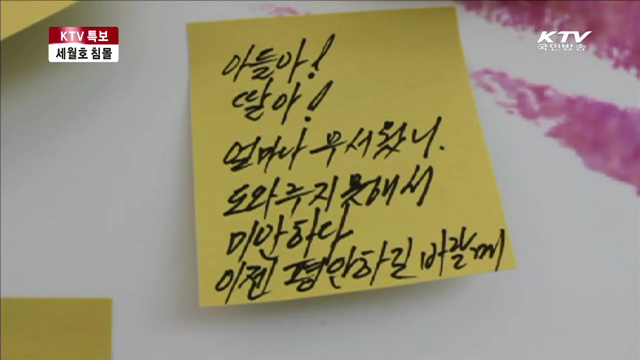 KTV 특보
세월호 침몰
KTV
국민방송
아들아!
딸아!
얼마나 무서웠니.
도와주지 못해서
미안하다
이젠 평안하길 바랄께